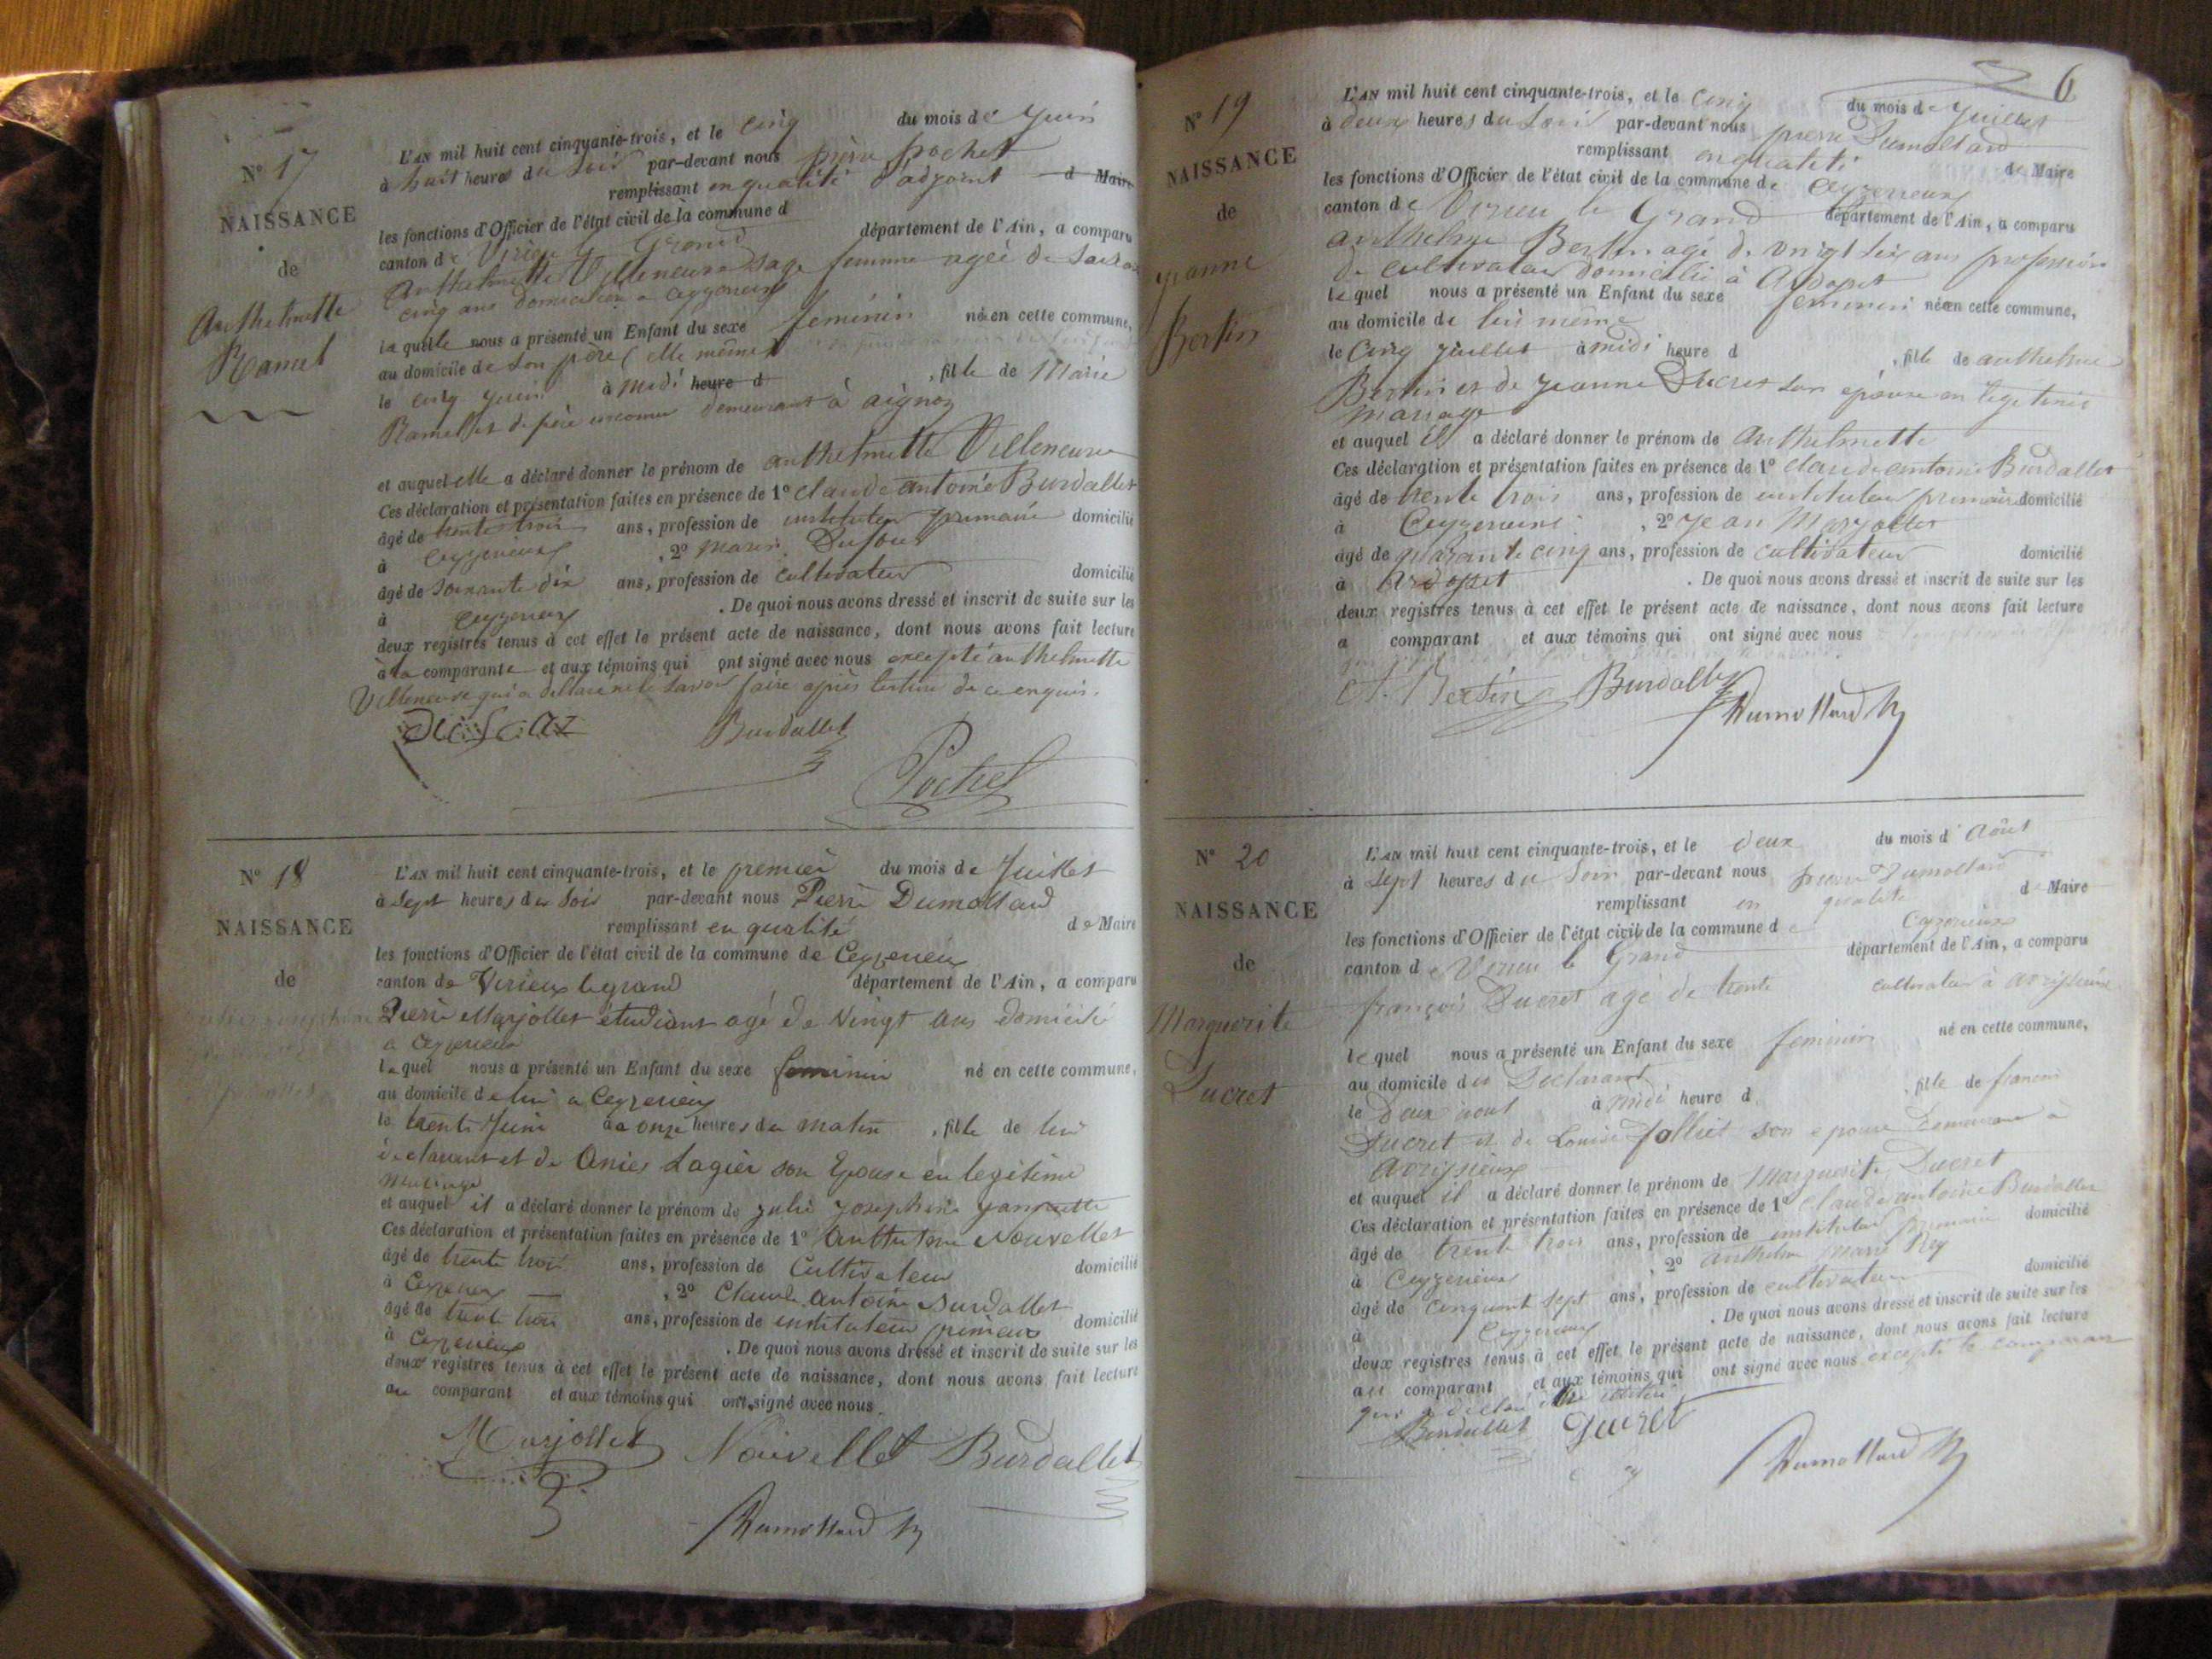 N° 17
NAISSANCE
de
Anthelmette
Ramel
L'AN mil huit cent cinquante-trois, et le cinq du mois de Juin
à huit heures du soir par-devant nous pierre pochet
remplissant en qualité d'adjoint d Maire
les fonctions d'Officier de l'état civil de la commune d
canton de Virieu le Grand département de l'Ain, a comparu
Anthelmette Villeneuve sage femme agée de
cinq ans domiciliée a ceyzerieux
laquelle nous a présenté un Enfant du sexe feminin née en cette commune,
au domicile de son père (elle même)
le cinq juin à midi heure d , fille de Marie
Ramel et de père inconnu demeurant à aignoz
et auquel elle a déclaré donner le prénom de anthelmette Villeneuve
Ces déclaration et présentation faites en présence de 1° claude antoine Burdallet
âgé de trente trois ans, profession de instituteur primaire domicilié
à Ceyzerieux , 2° marin Dufour
âgé de soixante dix ans, profession de cultivateur domicilié
à Ceyzerieux . De quoi nous avons dressé et inscrit de suite sur les
deux registres tenus à cet effet le présent acte de naissance, dont nous avons fait lecture
à la comparante et aux témoins qui ont signé avec nous excepté anthelmette
Villeneuve qui a déclaré ne le savoir faire après lecture de ce enquis.
Burdallet
Pochet
N° 18
NAISSANCE
de
L'AN mil huit cent cinquante-trois, et le premier du mois de Juillet
à sept heures du soir par-devant nous Pierre Dumollard
remplissant en qualité de Maire
les fonctions d'Officier de l'état civil de la commune de Ceyzerieux
canton de Virieux legrand département de l'Ain, a comparu
Pierre Marjollet étudiant agé de vingt ans domicilié
a Ceyzerieux
lequel nous a présenté un Enfant du sexe feminin né en cette commune,
au domicile de lui a Ceyzerieux
le trente Juin à onze heures du matin , fille de lui
déclarant et de Lagier son Epouse en legitime
mariage
et auquel il a déclaré donner le prénom de julie josephine
Ces déclaration et présentation faites en présence de 1° Nouvellet
âgé de trente trois ans, profession de Cultivateur domicilié
à Ceyzerieux , 2° Claude antoine Burdallet
âgé de trente trois ans, profession de instituteur primaire domicilié
à Ceyzerieux . De quoi nous avons dressé et inscrit de suite sur les
deux registres tenus à cet effet le présent acte de naissance, dont nous avons fait lecture
au comparant et aux témoins qui ont signé avec nous
Marjollet Nouvellet Burdallet
Dumollard
6
N° 19
NAISSANCE
de
jeanne
Bertin
L'AN mil huit cent cinquante-trois, et le cinq du mois de Juillet
à deux heures du soir par-devant nous pierre Dumollard
remplissant en qualité de Maire
les fonctions d'Officier de l'état civil de la commune de Ceyzerieux
canton de Virieu le Grand département de l'Ain, a comparu
anthelme Bertin agé de vingt six ans profession
de cultivateur domicilié à Ardosset
lequel nous a présenté un Enfant du sexe feminin née en cette commune,
au domicile de lui même
le cinq juillet à midi heure d , fille de anthelme
Bertin et de jeanne Ducret son épouse en legitime
mariage
et auquel il a déclaré donner le prénom de Anthelmette
Ces déclaration et présentation faites en présence de 1° claude antoine Burdallet
âgé de trente trois ans, profession de instituteur primaire domicilié
à Ceyzerieux , 2° jean Marjollet
âgé de quarante cinq ans, profession de cultivateur domicilié
à Ardosset . De quoi nous avons dressé et inscrit de suite sur les
deux registres tenus à cet effet le présent acte de naissance, dont nous avons fait lecture
a comparant et aux témoins qui ont signé avec nous
A. Bertin Burdallet
Dumollard
N° 20
NAISSANCE
de
Marguerite
Ducret
L'AN mil huit cent cinquante-trois, et le deux du mois d'Août
à sept heures du soir par-devant nous pierre Dumollard
remplissant en qualité de Maire
les fonctions d'Officier de l'état civil de la commune de Ceyzerieux
canton de Virieu le Grand département de l'Ain, a comparu
françois Ducret agé de trente cultivateur à avrissieux
lequel nous a présenté un Enfant du sexe feminin né en cette commune,
au domicile du Declarant
le deux aout à midi heure d , fille de francois
Ducret et de Louise Jolliet son epouse demeurant à
avrissieux
et auquel il a déclaré donner le prénom de Marguerite Ducret
Ces déclaration et présentation faites en présence de 1° claude antoine Burdallet
âgé de trente trois ans, profession de instituteur primaire domicilié
à Ceyzerieux , 2° anthelme marie Rey
âgé de cinquante sept ans, profession de cultivateur domicilié
à Ceyzerieux . De quoi nous avons dressé et inscrit de suite sur les
deux registres tenus à cet effet le présent acte de naissance, dont nous avons fait lecture
au comparant et aux témoins qui ont signé avec nous excepté le comparant
qui a déclaré
Burdallet Ducret
Dumollard